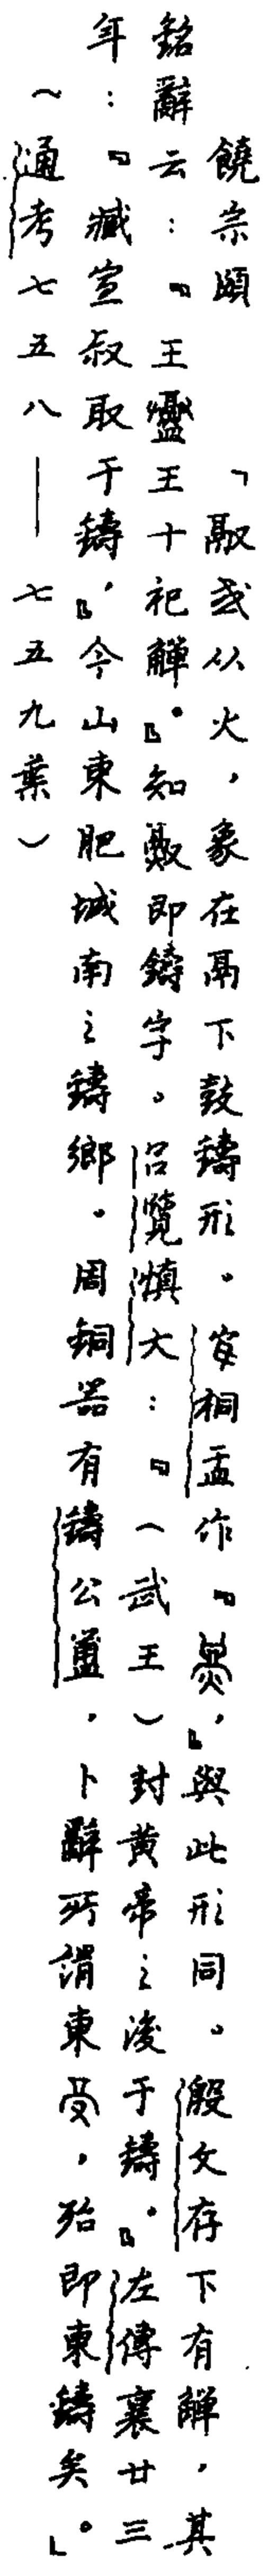 饒宗頤 「䰙或从火，象在鬲下鼓鑄形。宴桐盂作『𤐫』，與此形同。殷文存下有觶，其
銘辭云：『王鑄王十祀觶』。知䰙即鑄字。呂覽慎大：『（武王）封黃帝之後于鑄。』左傳襄廿三
年：『臧宣叔取于鑄』，今山東肥城南之鑄鄉。周銅器有鑄公簠，卜辭所謂東受，殆即東鑄矣。」
（通考七五八——七五九葉）